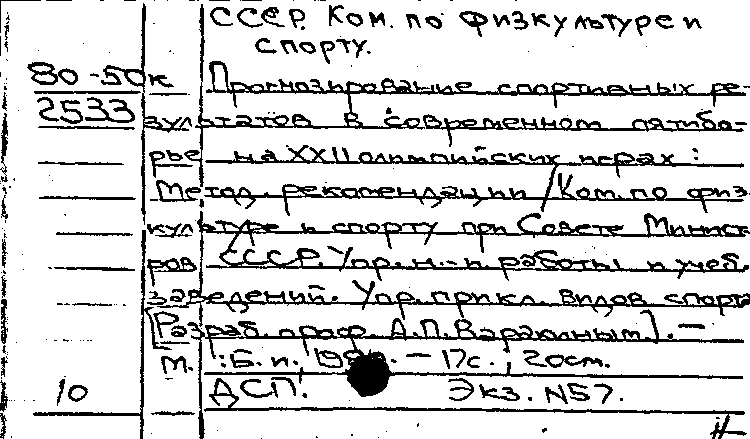 СССР. Ком. по физкультуре и
спорту.
80-50к Прогнозирование спортивных ре-
2533 зультатов в современном пятибо-
рье на XXII олимпийских играх :
Метод. рекомендации / Ком. по физ
культуре и спорту при Совете Минист
ров СССР. Упр. н.-и. работы и учеб.
заведений. Упр. прикл. видов спорта
[Разраб. проф. А.П. Варакиным]. —
М. : Б. и., — 17с. ; 20см.
10 ДСП. Экз. N57.